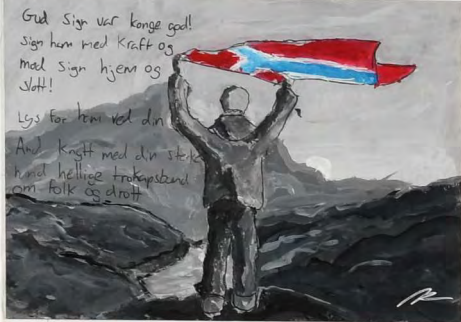 Gud sign vår konge god!
sign ham med kraft og
mod sign hjem og
slott!
Lys for ham ved din
Ånd knytt med din sterke
hånd hellige troskapsbånd
om folk og drott